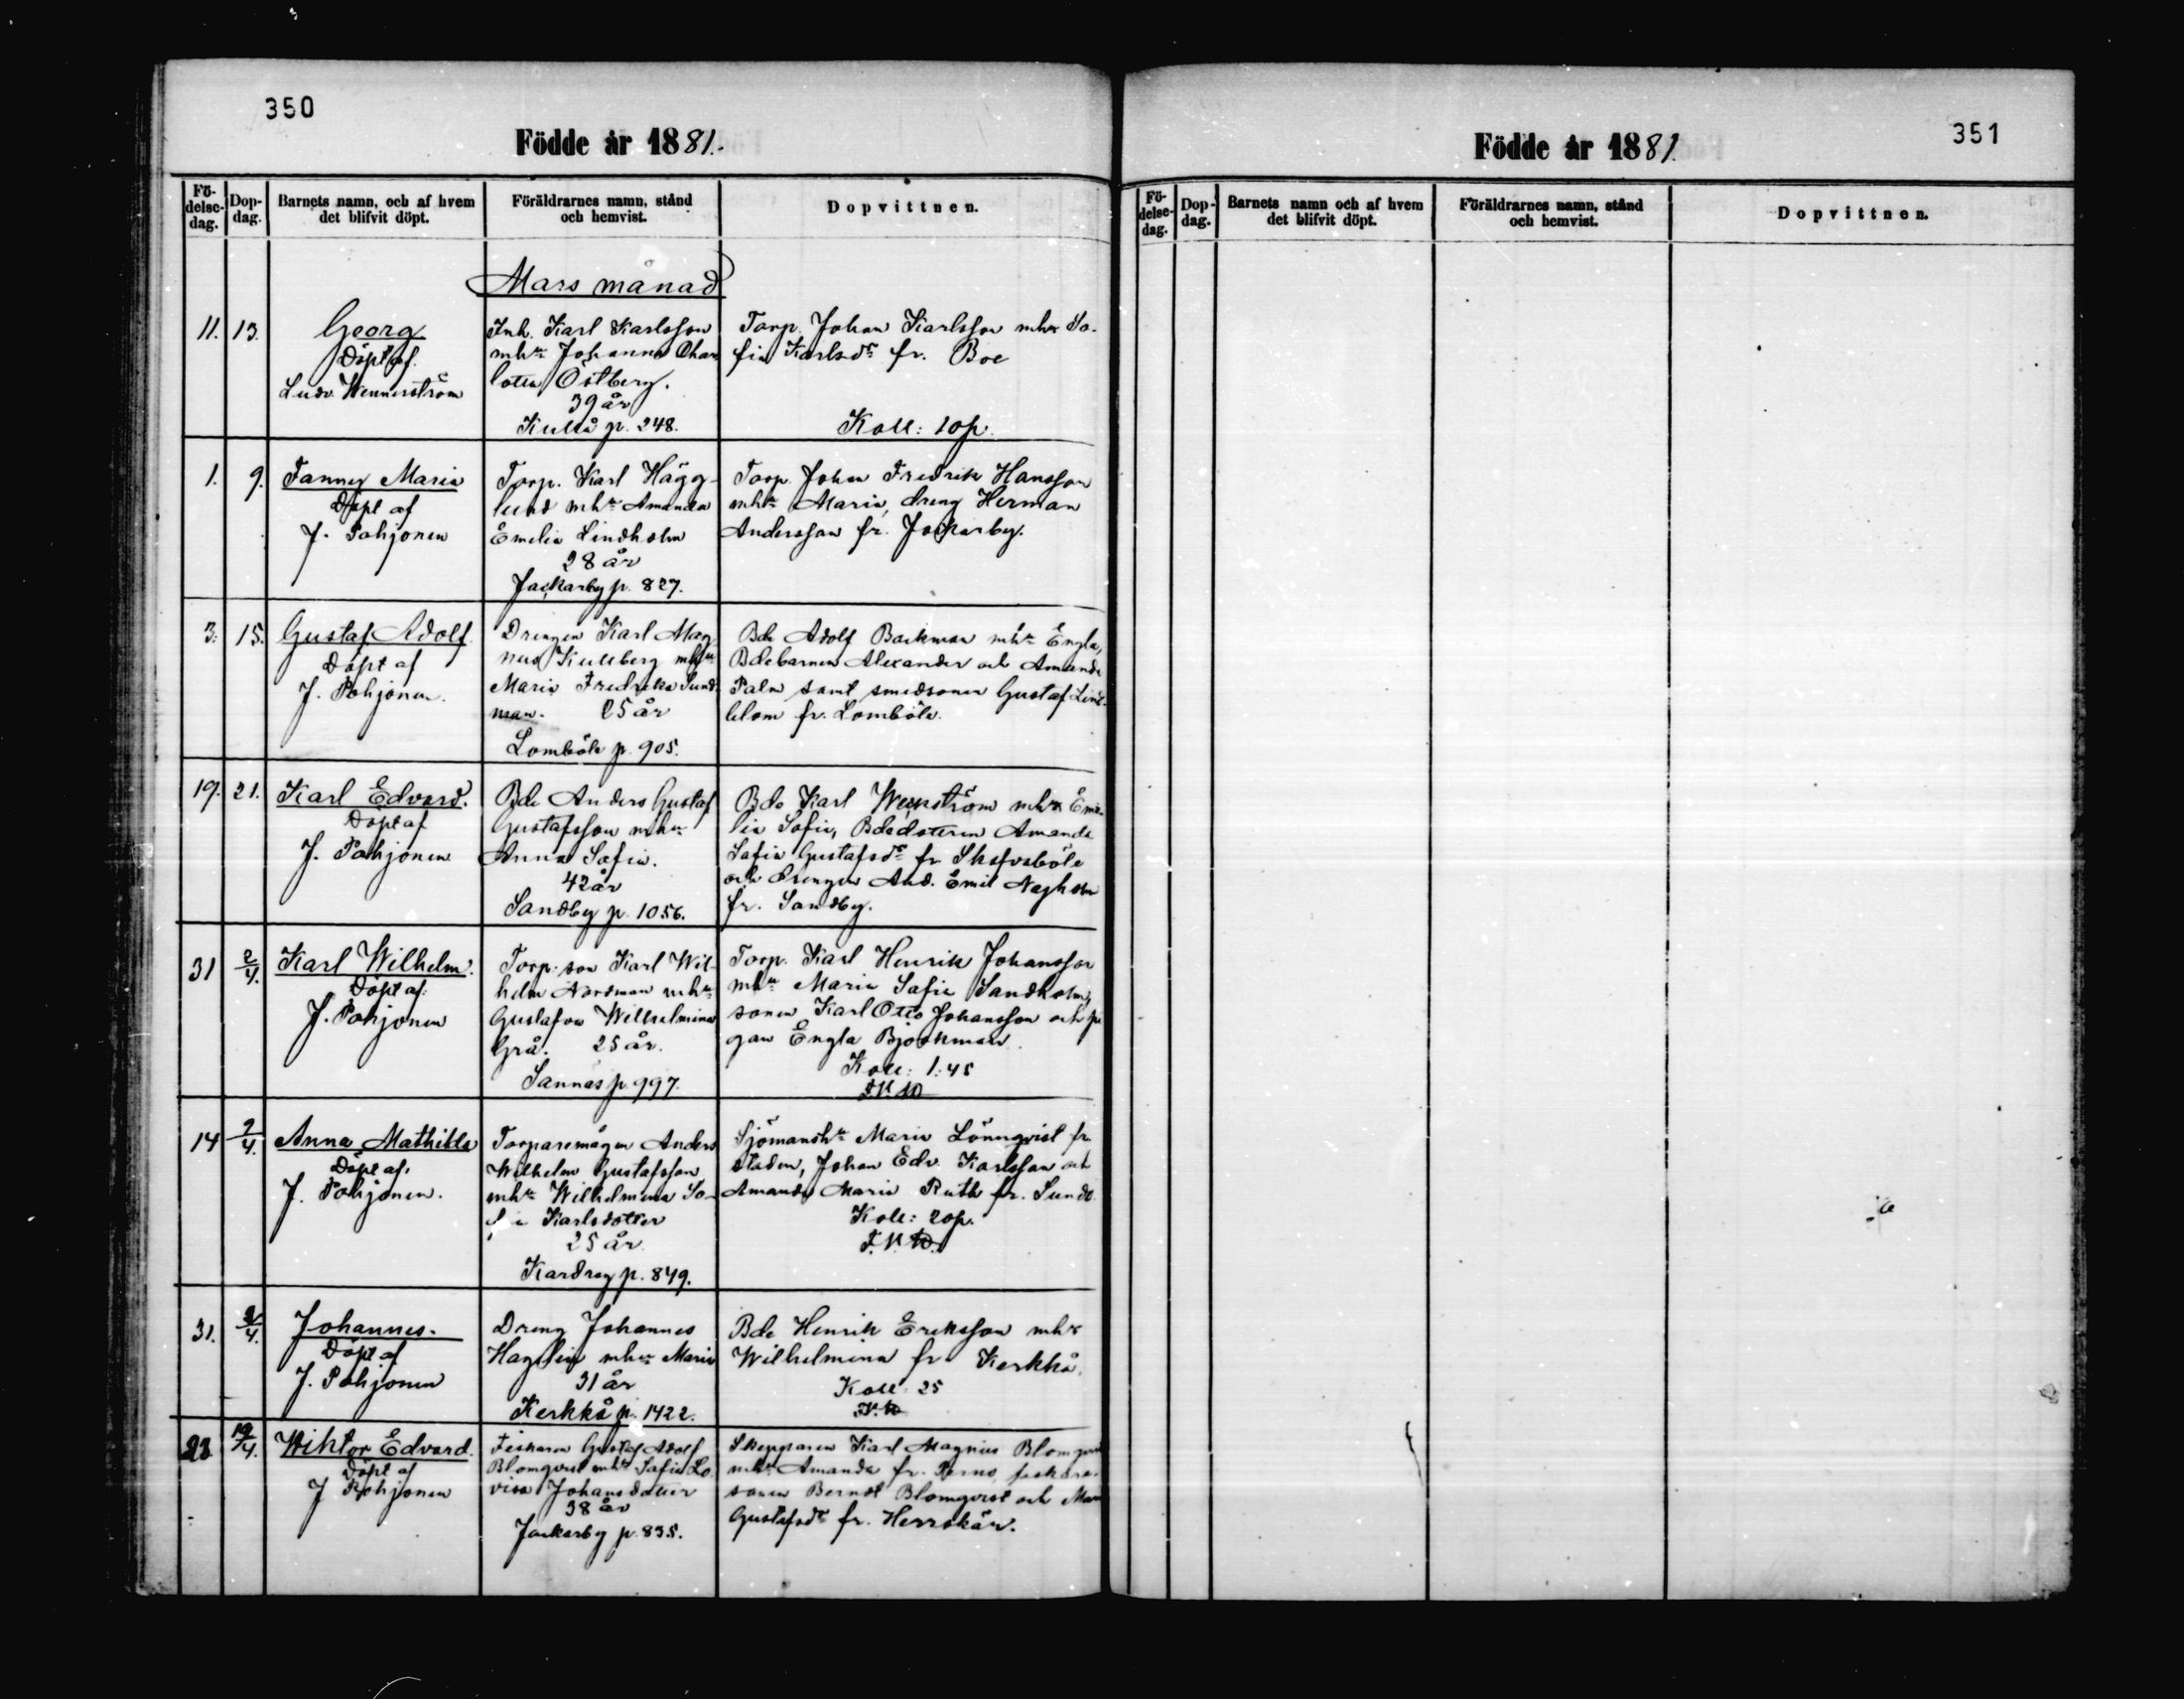 350
Födde år 1881.
Fö-
delse-
dag.
Dop-
dag.
Barnets namn, och af hvem
det blifvit döpt.
Föräldrarnes namn, stånd
och hemvist.
Dopvittnen.
Mars månad
11. 13.
Georg
Döpt af
Ludv. Wennerström
Inh. Karl Karlsson
mhu Johanna Char
lotta Östberg.
39 år
Kullå p. 248.
Torp. Johan Karlsson mhu So-
fia Karlsdr fr. Boe
Koll: 10p.
1. 9.
Fanny Maria
Döpt af
J. Pohjonen
Torp. Karl Hägg-
lund mhu Amanda
Emelia Lindholm
28 år
Jackarby p. 827.
Torp. Johan Fredrik Hansson
mhu Maria, dreng Herman
Andersson fr. Jackarby.
3. 15.
Gustaf Adolf
Döpt af
J. Pohjonen.
Drengen Karl Mag
nus Kullberg mhu
Maria Fredrika Sund-
man. 25 år
Lomböle p. 905.
Bde Adolf Backman mhu Engla,
Bdebarnen Alexander och Amanda
Palm samt smedsonen Gustaf Lind-
blom fr. Lomböle.
19. 21.
Karl Edvard.
Döpt af
J. Pohjonen
Bde Anders Gustaf
Gustafsson mhu
Anna Sofia.
42 år
Sandby p. 1056.
Bde Karl Wennström mhu Eme-
lia Sofia, Bdedottren Amanda
Sofia Gustafsdr fr
och drengen And. Emil
fr. Sandby.
31 2/4.
Karl Wilhelm.
Döpt af
J. Pohjonen
Torp. son Karl Wil-
helm Nordman mhu
Gustafva Wilhelmina
Grå. 25 år.
Sannäs p. 997.
Torp. Karl Henrik Johansson
mhu Maria Sofia Sandholm,
sonen Karl Otto Johansson och pi
gan Engla Björkman.
Koll: 1:45
14 2/4.
Anna Mathilda
Döpt af
J. Pohjonen.
Torparemågen Anders
Wilhelm Gustafsson
mhu Wilhelmina So-
fia Karlsdotter
25 år
Kardrag p. 849.
Sjömanshu Maria Lönnqvist fr
staden, Johan Edv. Karlsson och
Amanda Maria Ruth fr. Sundö
Koll: 20p.
31. 3/4.
Johannes.
Döpt af
J. Pohjonen
Dreng Johannes
Hagelin mhu Maria
31 år
Kerkkå p. 1422.
Bde Henrik Eriksson mhu
Wilhelmina fr Kerkkå.
Koll: 25
19/4.
Wiktor Edvard.
Döpt af
J Pohjonen
Fiskaren Gustaf Adolf
Blomqvist mhu Sofia Lo
visa Johansdotter
38 år
Jackarby p. 835.
Skepparen Karl Magnus Blomqvist
mhu Amanda fr. Perno, fiskare-
sonen Berndt Blomqvist och
Gustafsdr fr. Herrskär.
Födde år 1881.
351
Fö-
delse-
dag.
Dop-
dag.
Barnets namn och af hvem
det blifvit döpt.
Föräldrarnes namn, stånd
och hemvist.
Dopvittnen.